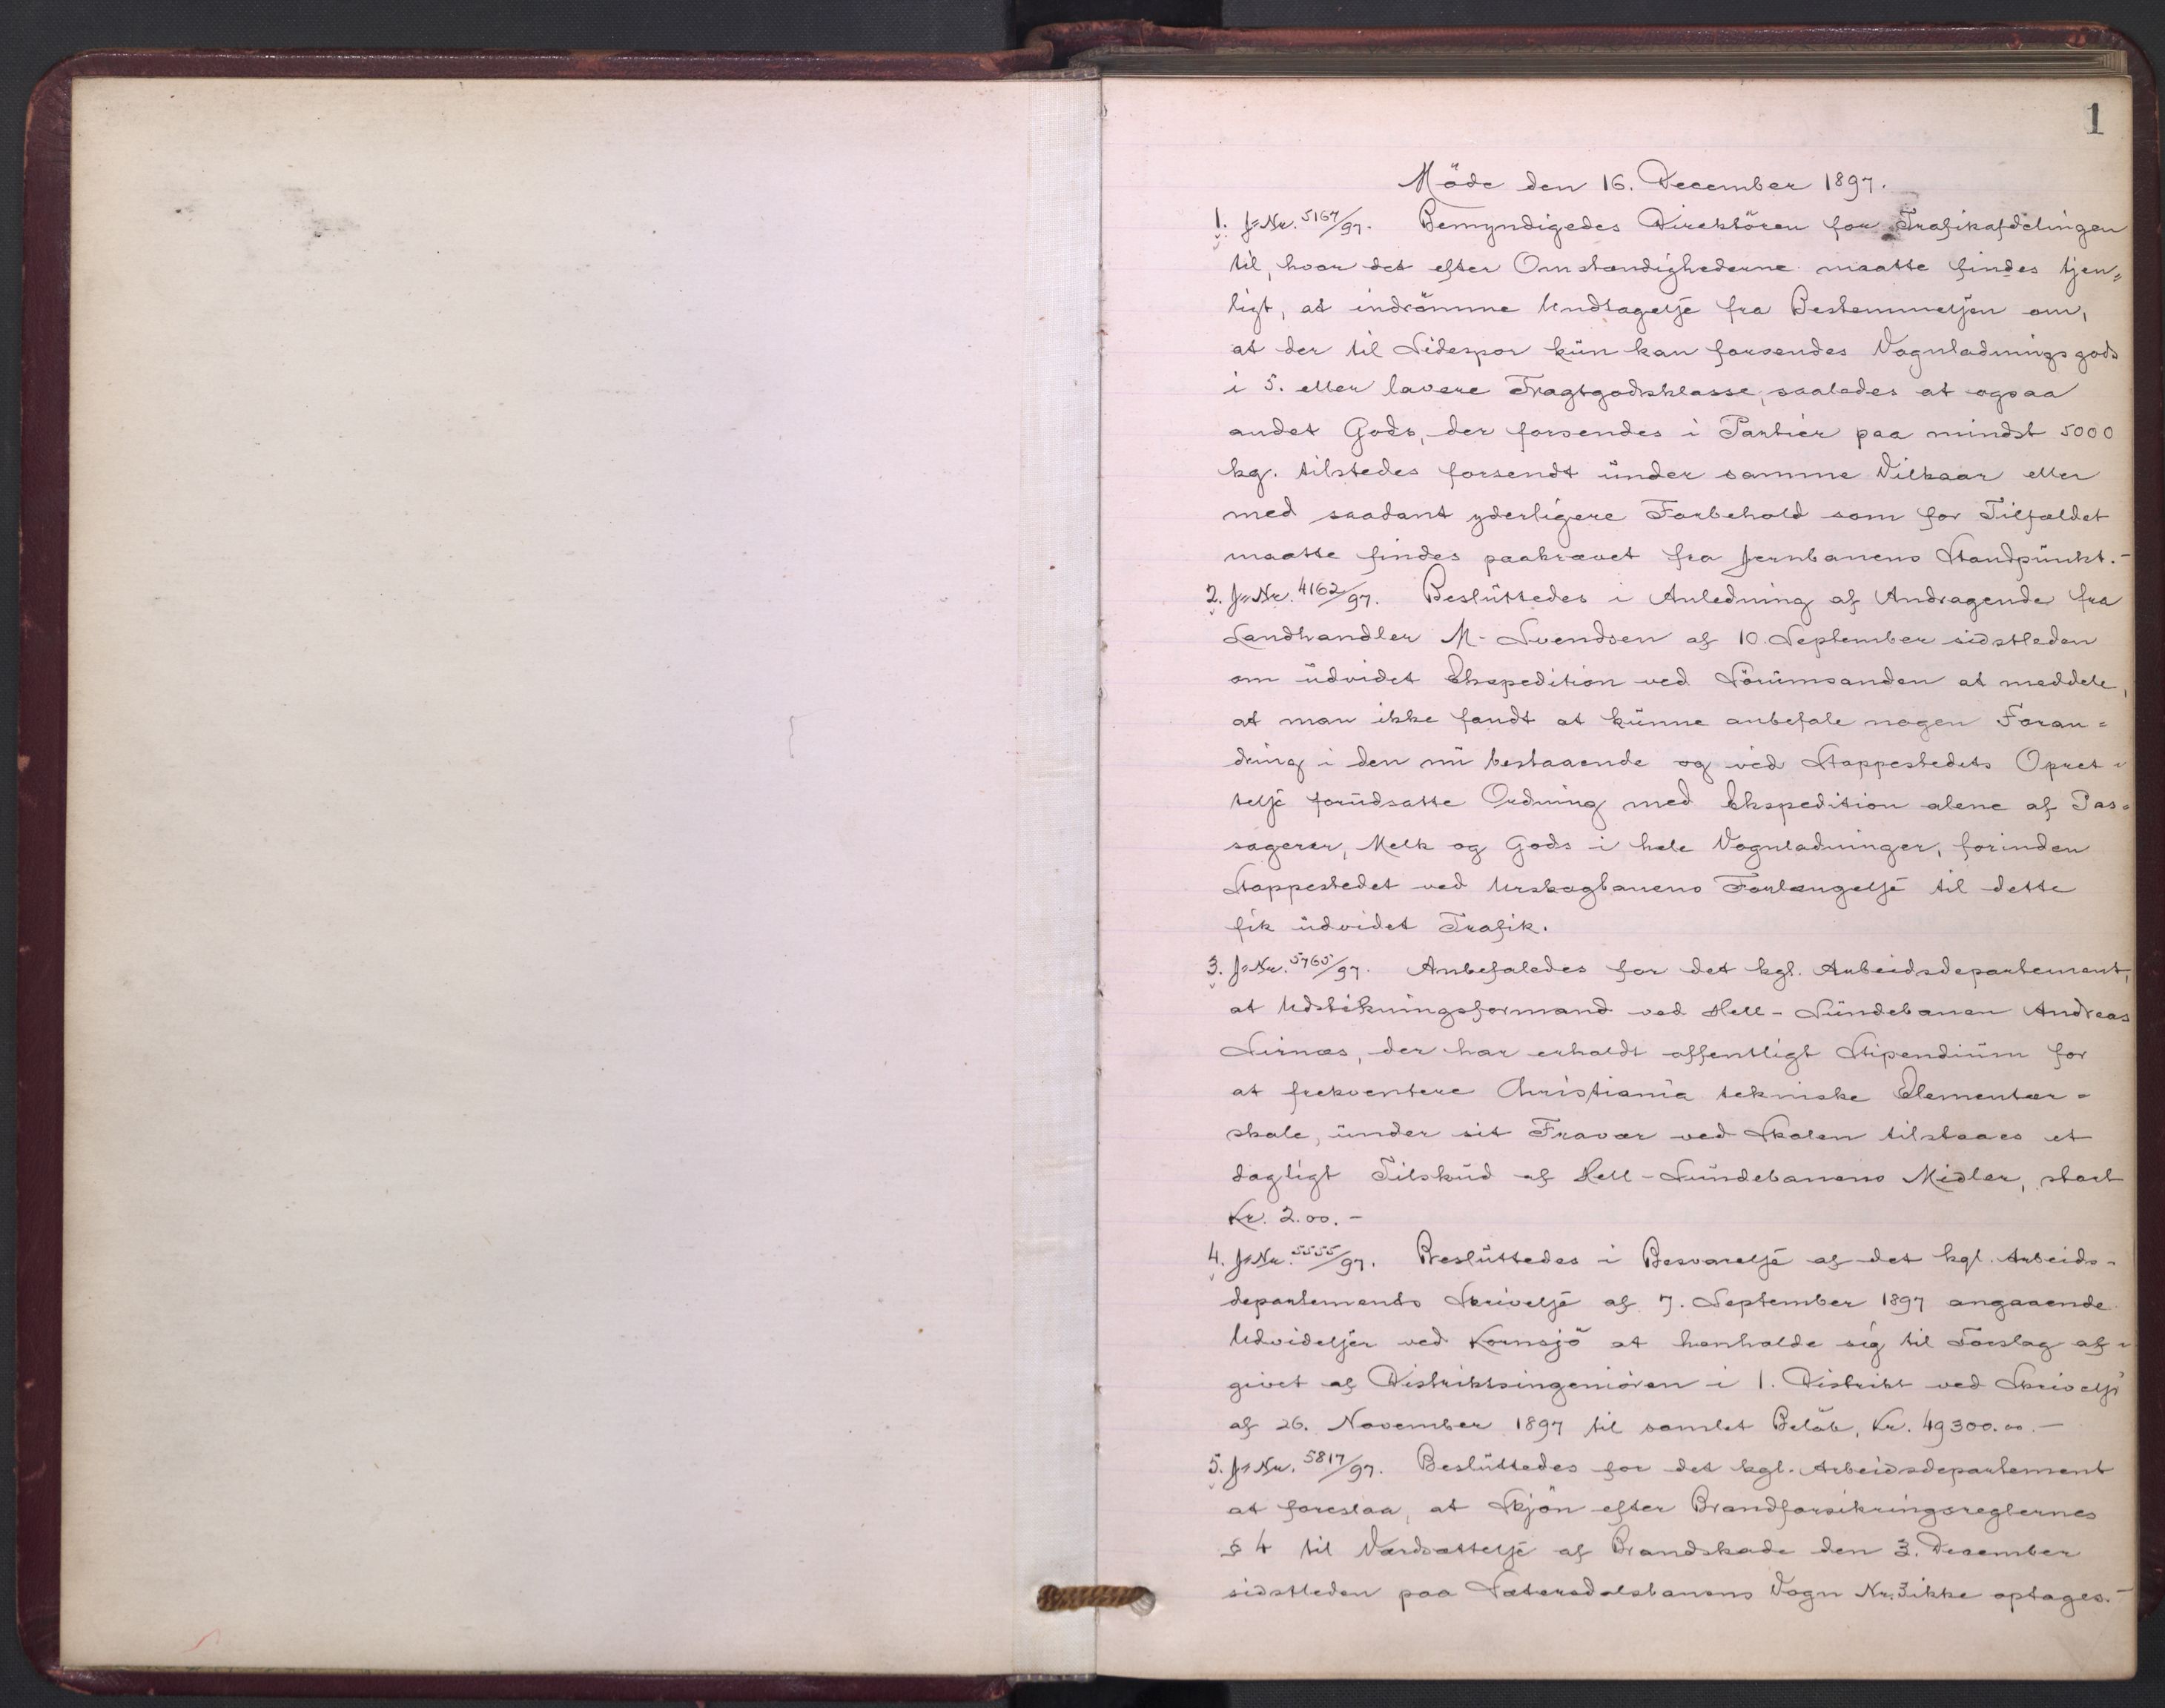 1
Möde den 16. December 1897.
1. J=Nr. 5167/97. Bemyndigedes Direktören for Trafikafdelingen
til, hvor det efter Omstændighederne maatte findes tjen=
ligt, at indrömme Undtagelse fra Bestemmelsen om,
at der til Sidespor kun kan forsendes Vognladningsgods
i 5. eller lavere Fragtgodsklasse, saaledes at ogsaa
andet Gods, der forsendes i Partier paa mindst 5000
kg. tilstedes forsendt under samme Vilkaar eller
med saadant yderligere Forbehold som for Tilfældet
maatte findes paakrævet fra Jernbanens Standpunkt.-
2. J=Nr. 4162/97. Besluttedes i Anledning af Andragende fra
Landhandler M. Svendsen af 10. September sidstleden
om udvidet Ekspedition ved Sörumsanden at meddele,
at man ikke fandt at kunne anbefale nogen Foran=
dring i den nu bestaaende og ved Stoppestedets Opret=
telse forudsatte Ordning med Ekspedition alene af Pas=
sagerer, Melk og Gods i hele Vognladninger, forinden
Stoppestedet ved Urskogbanens Forlængelse til dette
fik udvidet Trafik.
3. J=Nr. 5765/97. Anbefaledes for det kgl. Arbeidsdepartement,
at Udstikningsformand ved Hell-Sundebanen Andreas
Sirnes, der har erholdt offentligt Stipendium for
at frekventere Christiania tekniske Elementær=
skole, under sit Fravær ved Skolen tilstaaes et
dagligt Tilskud af Hell-Sundebanens Midler, stort
Kr. 2.00.-
4. J=Nr. 5555/97. Besluttedes i Besvarelse af det kgl. Arbeids=
departements Skrivelse af 7. September 1897 angaaende
Udvidelser ved Kornsjö at henholde sig til Forslag af=
givet af Distriktsingeniören i 1. Distrikt ved Skrivelse
af 26. November 1897 til samlet Belöb, Kr. 49300.00.-
5. J=Nr. 5817/97. Besluttedes for det kgl. Arbeidsdepartement
at foreslaa, at Skjön efter Brandforsikringsreglernes
§ 4 til Værdsættelse af Brandskade den 3. Desember
sidstleden paa Sætersdalsbanens Vogn Nr. 3 ikke optages.-